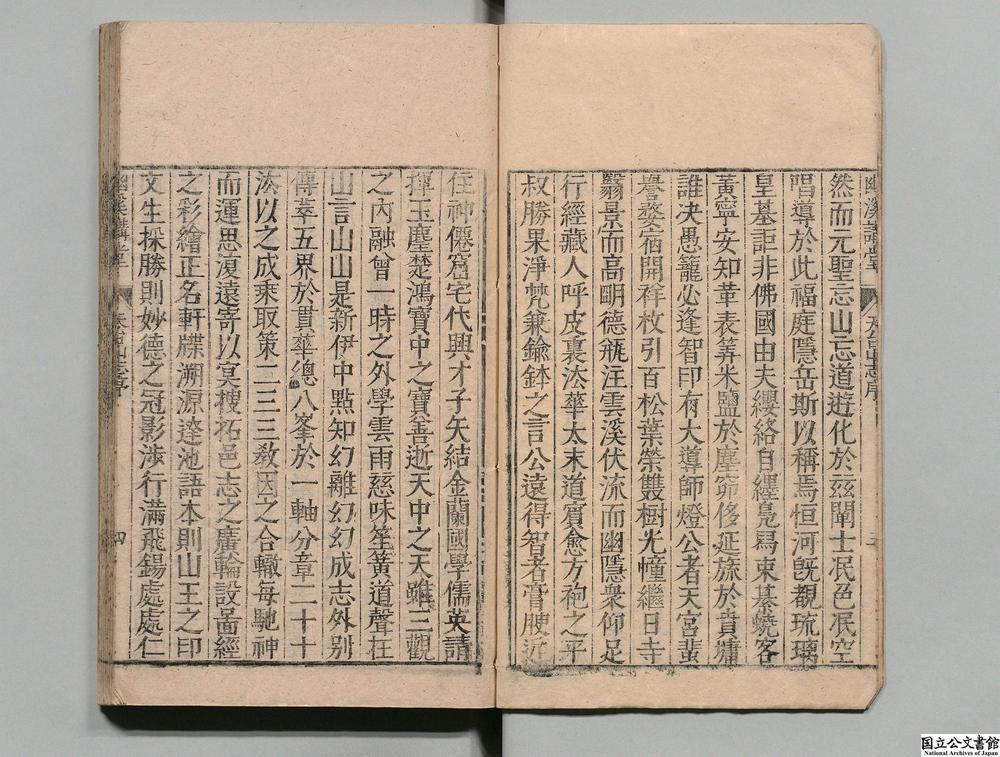 幽溪講堂 天台山志序
然而元聖忘山忘道遊化於茲闡士泯色泯空
唱導於此福庭隱岳斯以稱焉恒河旣覩琉璃
皇基詎非佛國由夫纓絡自纏鳧舄束綦蟯客
黃寧安知革表筭米鹽於塵窌侈延旅於賁墉
誰决愚籠必逢智印有大導師燈公者天宮蜚
譽婺宿開祥枚引百松葉榮雙樹光幢繼日寺
翳景而高朙德瓶汪雲溪伏流而幽隱衆仰足
行經藏人呼皮裏法華太末道賓愈方袍之平
叔勝果淨梵兼鍮鉢之言公遠得智者膏腴近
住神僊窟宅代興才子矢結金蘭國學儒英請
揮玉麈楚鴻寶中之寶善逝天中之天雖三觀
之內融曾一時之外學雲雨慈味笙簧道聲在
山言山山是新伊中點知幻離幻幻成志外别
傳萃五界於貫華總八峯於一軸分章二十十
法以之成乘取策二三三敎因之合轍每馳神
而運思復遠寄以冥搜拓邑志之廣輪設啚經
之彩繪正名軒牒溯源逹池語本則山王之印
文生採勝則妙德之冠影涉行滿飛錫處處仁
幽溪講堂 天台山志序 四
国立公文書館
National Archives of Japan